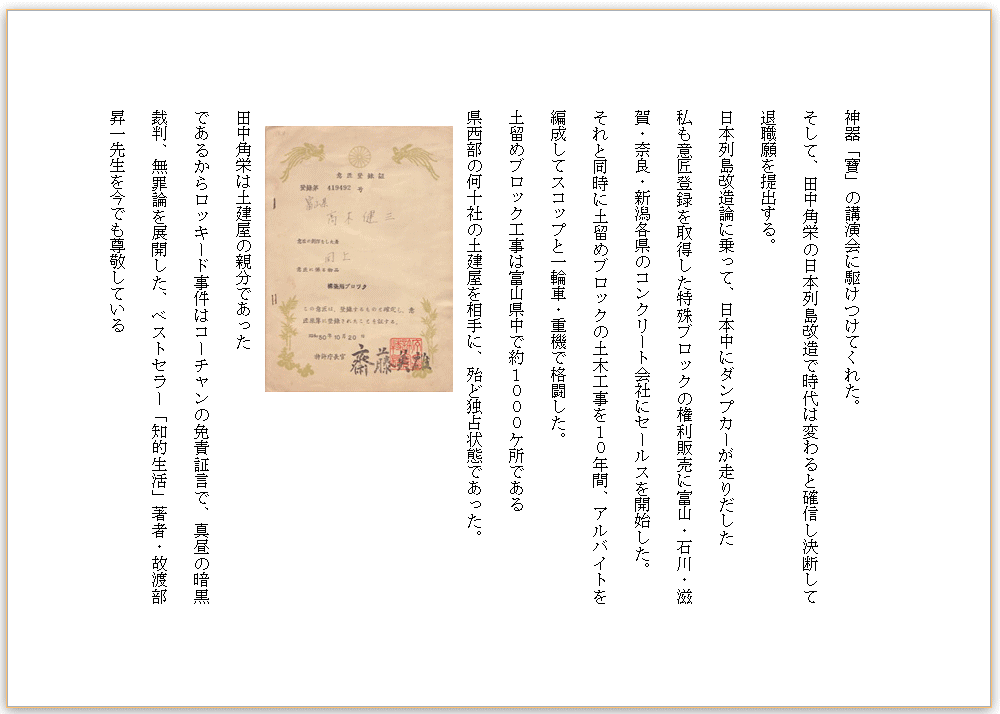 神器「寶」の講演会に駆けつけてくれた。
そして、田中角栄の日本列島改造で時代は変わると確信し決断して
退職願を提出する。
日本列島改造論に乗って、日本中にダンプカーが走りだした
私も意匠登録を取得した特殊ブロックの権利販売に富山・石川・滋
賀・奈良・新潟各県のコンクリート会社にセールスを開始した。
それと同時に土留めブロックの土木工事を１０年間、アルバイトを
編成してスコップと一輪車・重機で格闘した。
土留めブロック工事は富山県中で約１０００ケ所である
県西部の何十社の土建屋を相手に、殆ど独占状態であった。
意匠登録証
登録第 419492 号
富山県
同上
意匠に係る物品
この意匠は、登録するものと確定し、意
匠原簿に登録されたことを証する。
50年10月20日
特許庁長官
齋藤英雄
田中角栄は土建屋の親分であった
であるからロッキード事件はコーチャンの免責証言で、真昼の暗黒
裁判、無罪論を展開した、ベストセラー「知的生活」著者・故渡部
昇一先生を今でも尊敬している